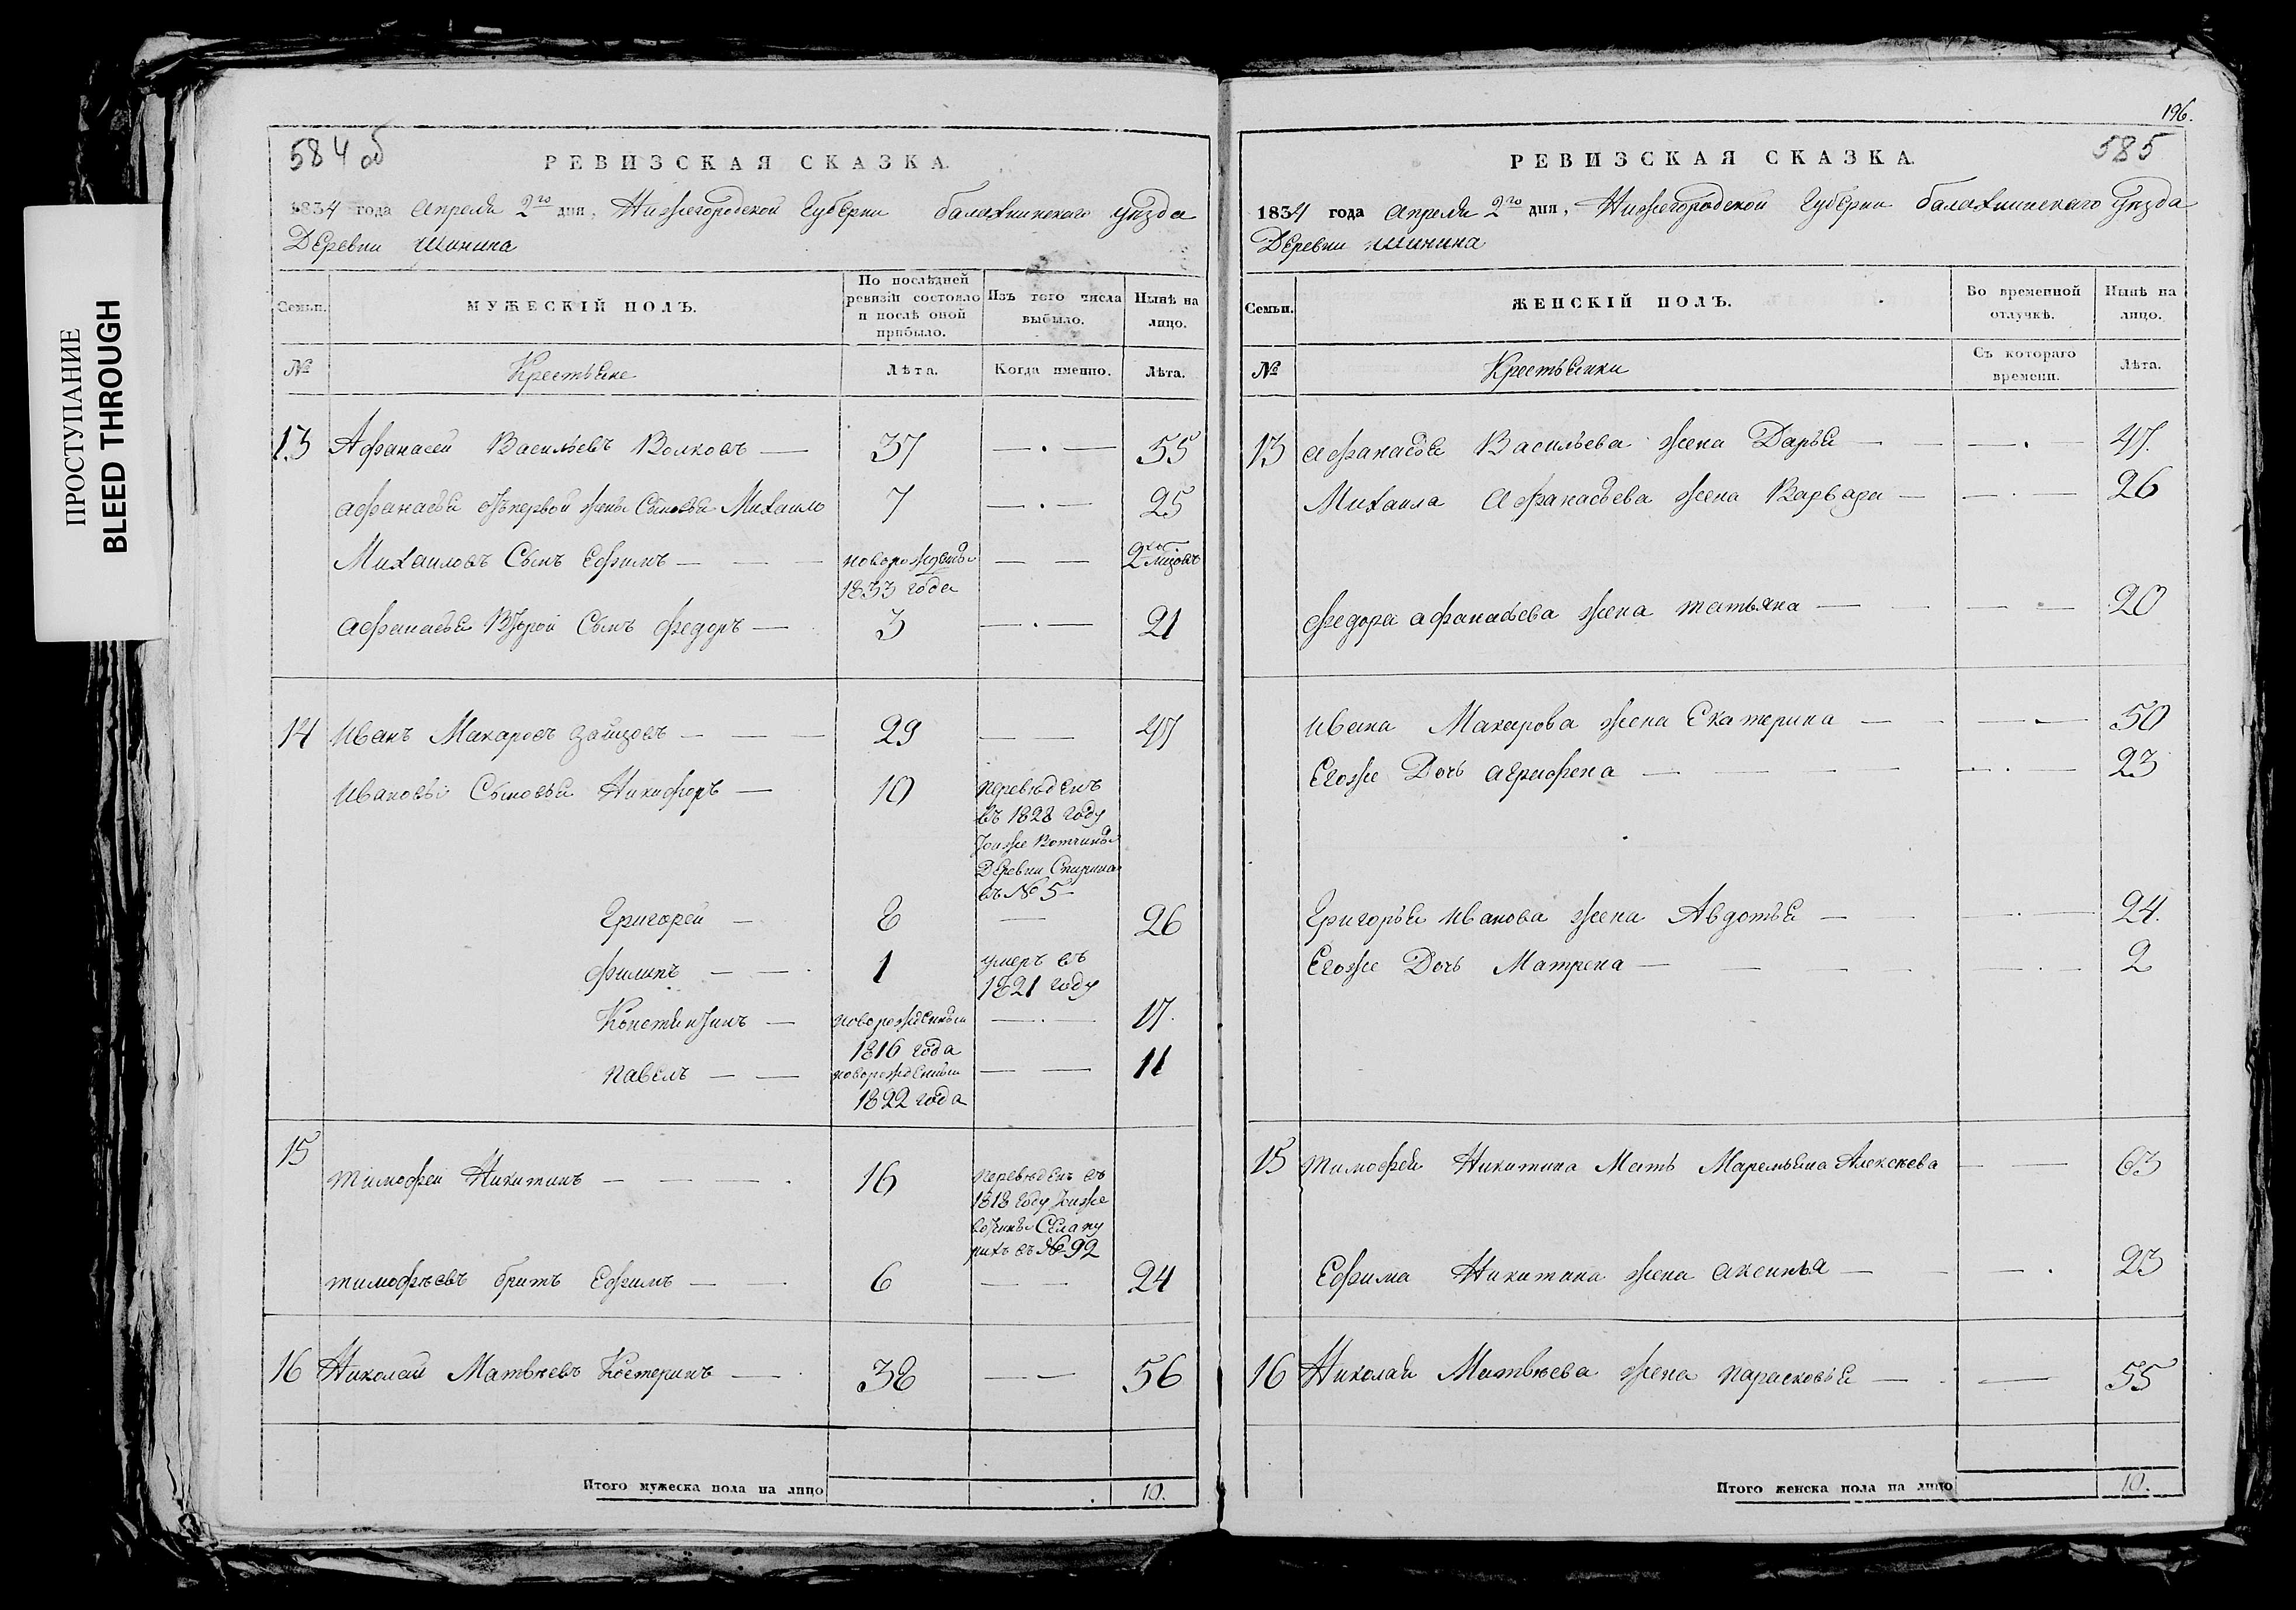 ПРОСТУПАНИЕ
BLEED THROUGH
584 об
РЕВИЗСКАЯ СКАЗКА.
1834 года Апреля 2го дня, Нижегородской Губернии балахнинскаго уезда
Деревни Шинина
Семьи.
МУЖЕСКІЙ ПОЛЪ.
По послѣдней ревизіи состояло и послѣ оной прибыло.
Изъ того числа выбыло.
Нынѣ на лицо.
№
Крестьяне
Лѣта.
Когда именно.
Лѣта.
13 Афанасей Васильевъ Волковъ 37 55
Афанасья отъ первой жены Сыновья Михаило 7 25
Михаиловъ Сынъ Ефимъ 1833 года
Афанасья Второй Сынъ Федоръ 3 21
14 Иванъ Макаровъ Зайцовъ 29 47
Ивановы Сыновья Никифоръ 10 переведенъ
въ 1828 году
тоиже Вотчины
Деревни Спирина
въ № 5
Григорей 8 26
Филипъ 1 умеръ въ
1821 году
Константинъ новорожденный 17.
1816 года
Павелъ новорожденный 11
1822 года
15
Тимофеи Никитинъ 16 переведенъ въ
1818 году тоиже
вотчины Села пу
рихъ въ № 92
Тимофѣевъ братъ Ефимъ 6 24
16 Николаи Матвѣевъ Костеринъ 38 56
Итого мужеска пола на лицо 10.
196.
585
РЕВИЗСКАЯ СКАЗКА.
1834 года Апреля 2го дня, Нижегородской Губернии балахнинскаго уезда
Деревни Шинина
Семьи.
ЖЕНСКІЙ ПОЛЪ.
Во временной отлучкѣ.
Нынѣ на лицо.
№
Крестьянки
Съ котораго времени.
Лѣта.
13 Афанасья Васильева жена Дарья 47.
Михаила Афанасьева жена Варвара 26
Федора Афанасьева жена Татьяна 20
Ивана Макарова жена Екатерина 50
Егоже Дочь Агрофена 23
Григорья Иванова жена Авдотья 24.
Егоже Дочь Матрена 2
15 Тимофея Никитина Мать Маремьяна Алексѣева 63
Ефима Никитина жена Аксинья 23
16 Николая Матвѣева жена Парасковья 55
Итого женска пола на лицо 10.